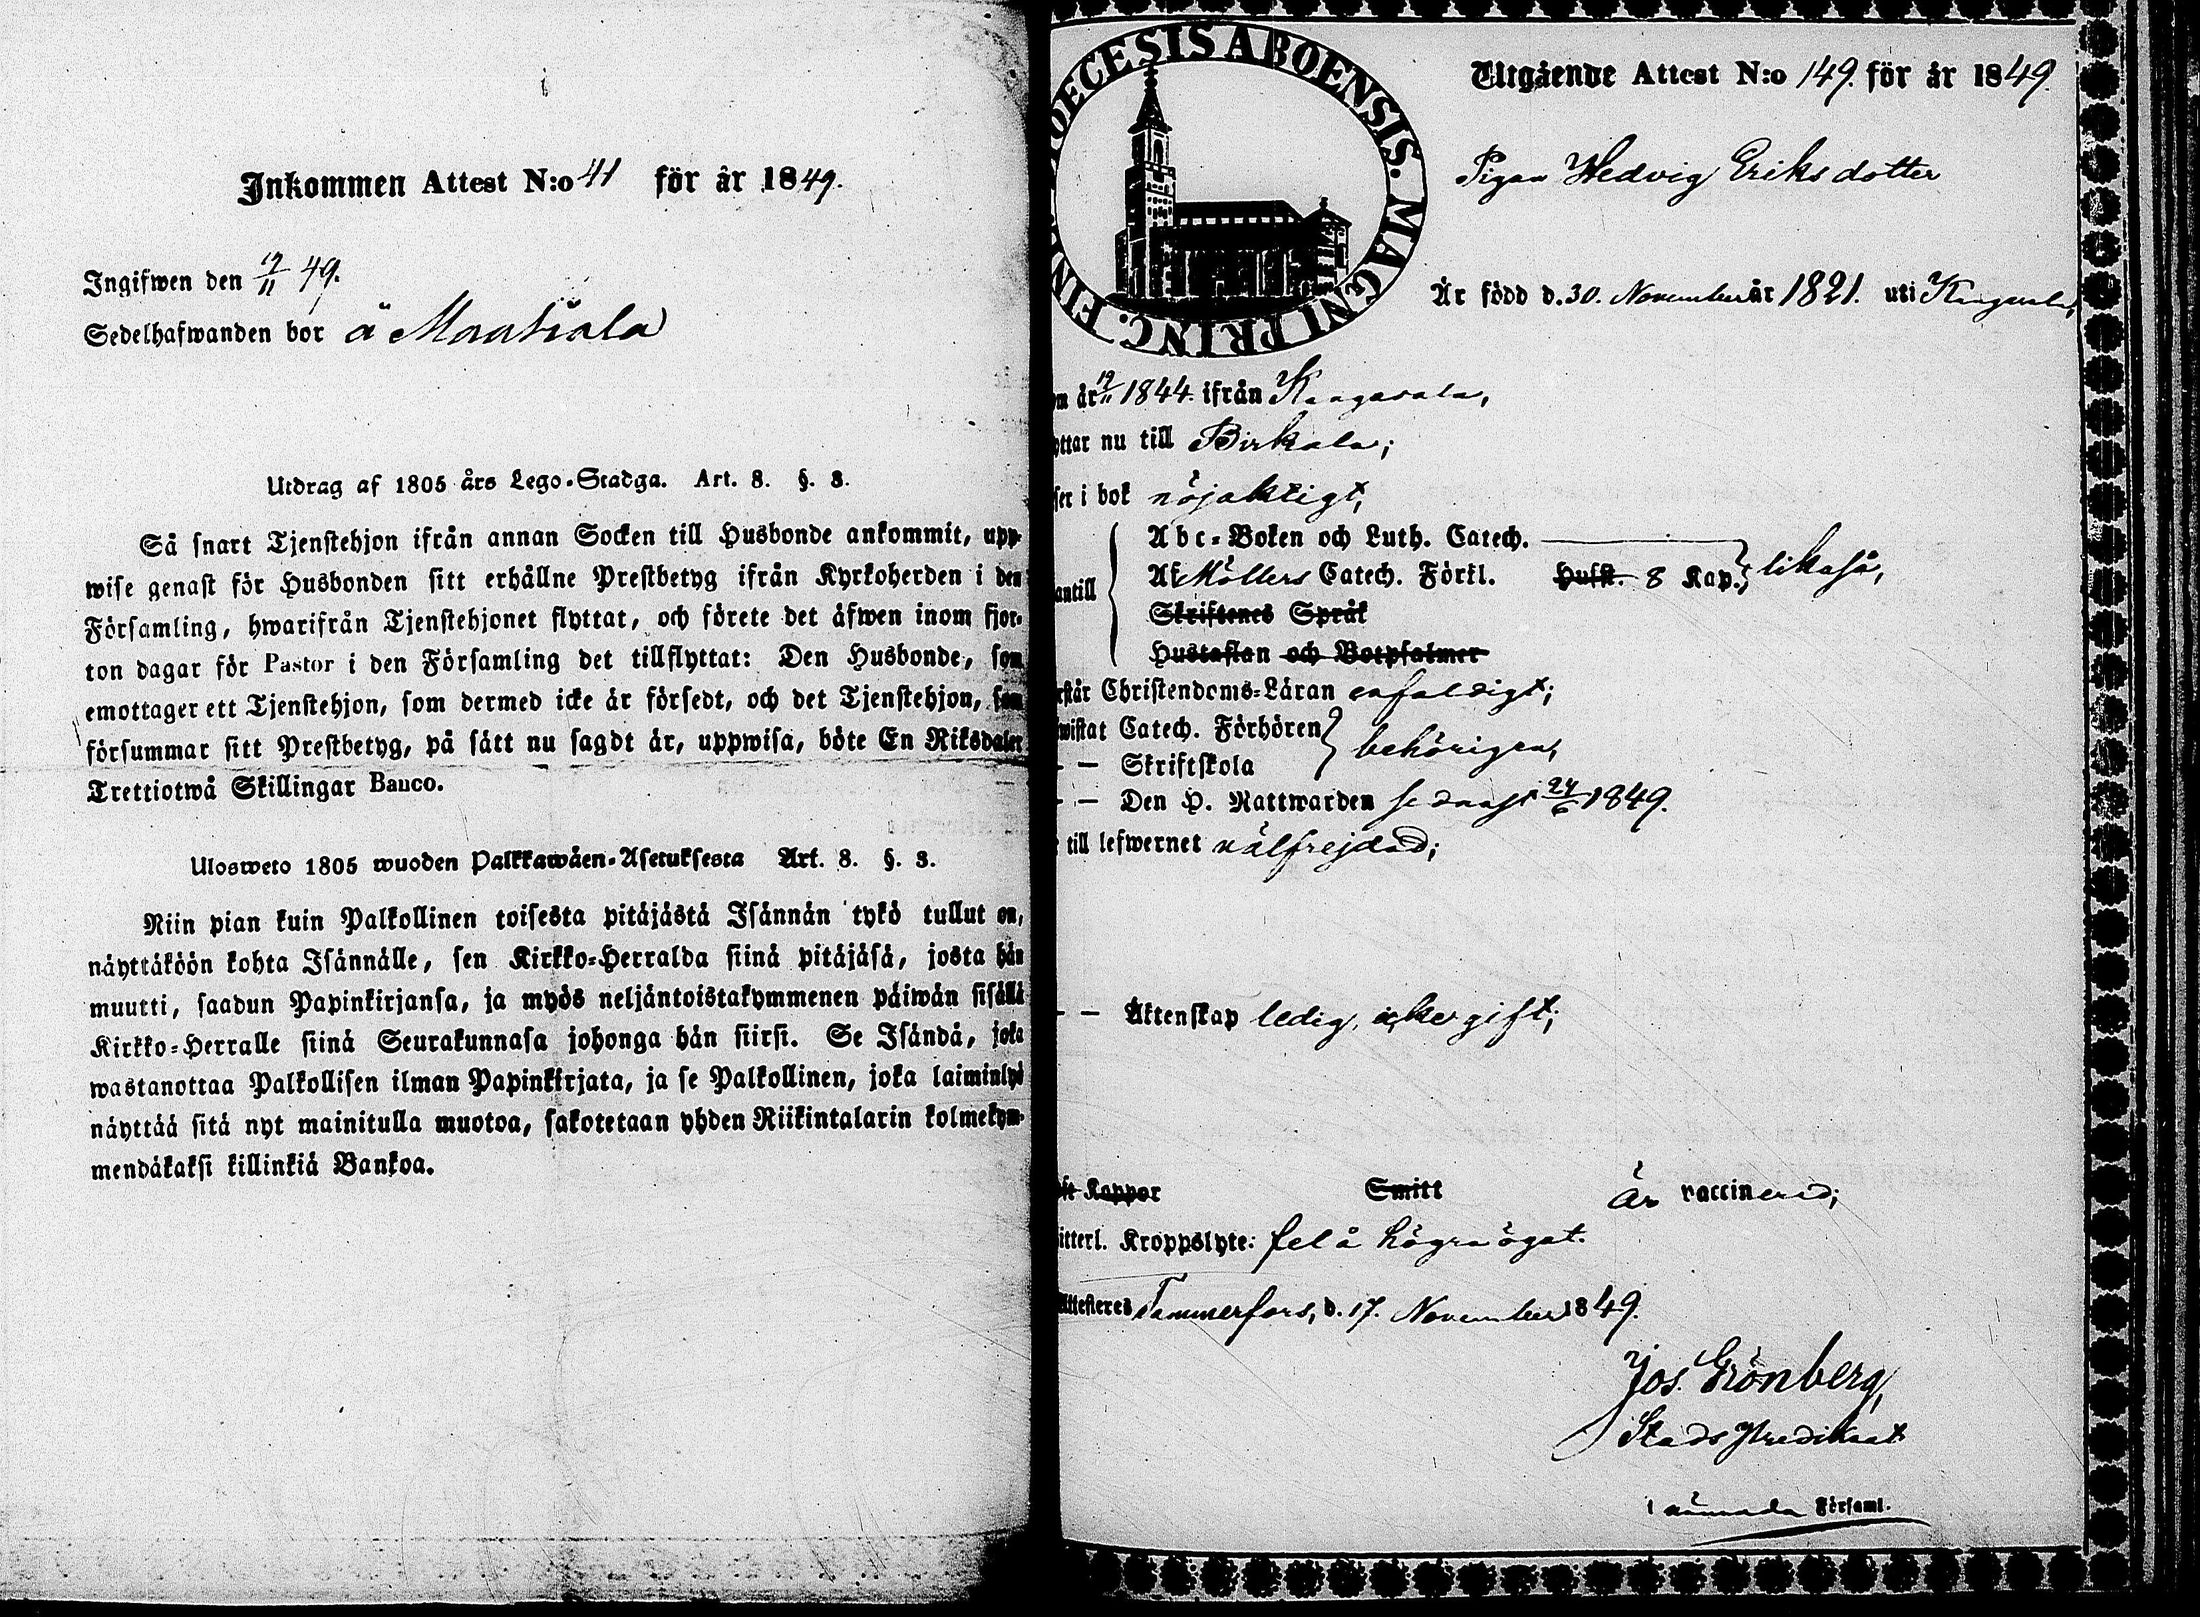 Inkommen Attest N:o 41 för år 1849.
Ingifwen den 19/11 49.
Sedelhafwanden bor å Maatiala
Utdrag af 1805 års Lego-Stadga. Art. 8. §. 3.
Så snart Tjenstehjon ifrån annan Socken till Husbonde ankommit, upp-
wise genast för Husbonden sitt erhållne Prestbetyg ifrån Kyrkoherden i den
Församling, hwarifrån Tjenstehjonet flyttat, och förete det äfwen inom fjor-
ton dagar för Pastor i den Församling det tillflyttat: Den Husbonde, som
emottager ett Tjenstehjon, som dermed icke är försedt, och det Tjenstehjon, som
försummar sitt Prestbetyg, på sätt nu sagdt är, uppwisa, böte En Riksdaler
Trettiotwå Skillingar Banco.
Ulosweto 1805 wuoden Palkkawäen-Asetuksesta Art. 8. §. 3.
Niin pian kuin Palkollinen toisesta pitäjästä Isännän tykö tullut on,
näyttäköön kohta Isännälle, sen Kirkko-Herralda siinä pitäjäsä, josta hän
muutti, saadun Papinkirjansa, ja myös neljäntoistakymmenen päiwän sisällä
Kirkko-Herralle siinä Seurakunnasa johonga hän siirsi. Se Isändä, joka
wastanottaa Palkollisen ilman Papinkirjata, ja se Palkollinen, joka laiminlyö
näyttää sitä nyt mainitulla muotoa, sakotetaan yhden Riikintalarin kolmekym-
mendäkaksi killinkiä Bankoa.
DECESIS ABOENSIS. MAGNI PRINC. FIN
Utgående Attest N:o 149. för år 1849.
Pigan Hedvig Eriksdotter
Är född d. 30. November år 1821. uti Kangasala,
år 19/11 1844. ifrån Kangasala,
ttar nu till Birkala;
ser i bok nöjaktigt,
antill
Abc-Boken och Luth. Catech.
Af Möllers Catech. Förkl. Hufst. 8 Kap. likaså,
Skriftenes Språk
Hustaflan och Botpsalmer
står Christendoms-Läran enfaldigt;
wistat Catech. Förhören
– Skriftskola behörigen,
– – Den H. Nattwarden sednast 24/6 1849.
till lefwernet wälfrejdad;
– – Äktenskap ledig, icke gift;
Kappor Smitt är vaccinerad;
itterl. Kroppslyte: fel å högra ögat.
Attesteres Tammerfors, d. 17. November 1849.
Jos. Grönberg,
Stads Predikant
i nämnda Församl.